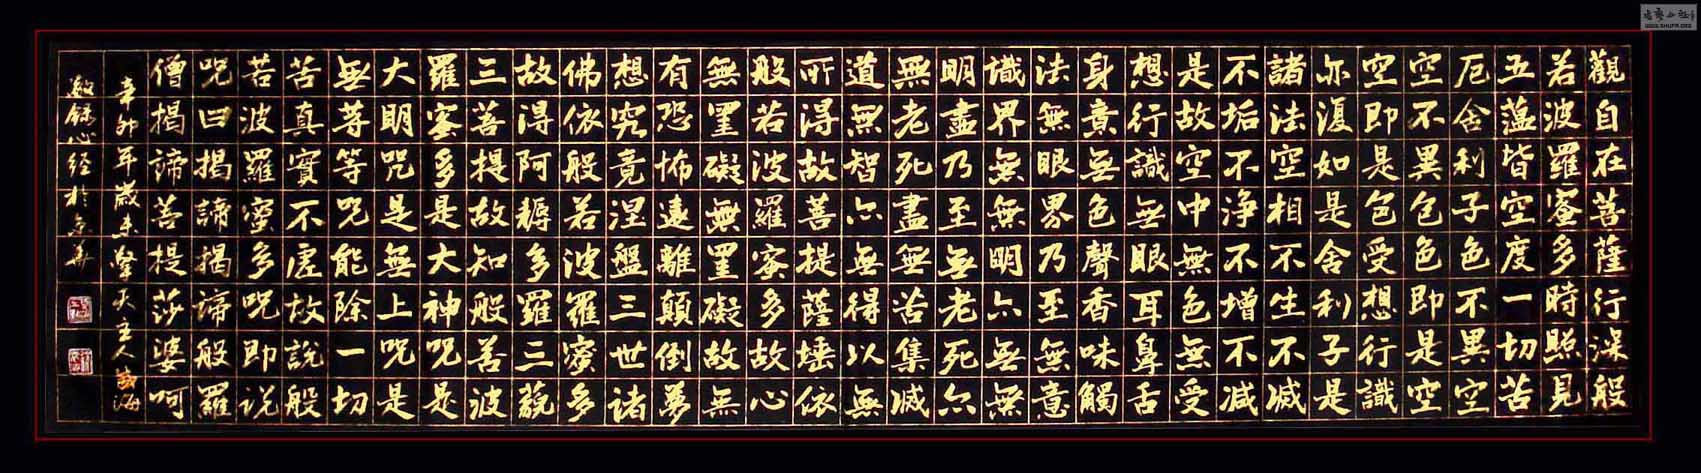 觀自在菩薩行深般
若波羅蜜多時照見
五蘊皆空度一切苦
厄舍利子色不異空
空不異色色即是空
空即是色受想行識
亦復如是舍利子是
諸法空相不生不滅
不垢不淨不增不減
是故空中無色無受
想行識無眼耳鼻舌
身意無色聲香味觸
法無眼界乃至無意
識界無無明亦無無
明盡乃至無老死亦
無老死盡無苦集滅
道無智亦無得以無
所得故菩提薩埵依
般若波羅蜜多故心
無罣礙無罣礙故無
有恐怖遠離顛倒夢
想究竟涅盤三世诸
佛依般若波羅蜜多
故得阿耨多羅三藐
三菩提故知般若波
羅蜜多是大神呪是
大明呪是無上呪是
無等等呪能除一切
苦真實不虛故說般
若波羅蜜多呪即说
呪曰揭諦揭諦般羅
僧揭諦菩提莎婆呵
辛卯年歲末擎天主人
敬錄心经於京華
WWW.SHUFA.ORG